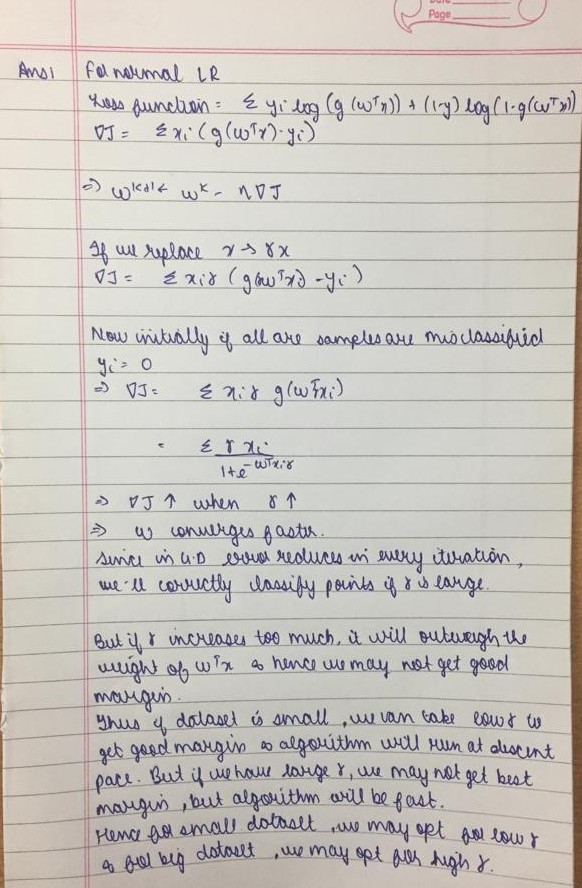 Page
Ans1 For normal LR
Loss function = Σ yi log (g (wᵀx)) + (1-y) log (1-g(wᵀx))
∇J = Σ xi (g(wᵀx)-yi)
⇒ wᵏ⁺¹ ← wᵏ - η∇J
If we replace x → γx
∇J = Σ xiγ (g(γwᵀx) - yi)
Now initially if all are samples are misclassified
yi = 0
⇒ ∇J = Σ xiγ g(wᵀxi)
= Σ γ xi
1+e^-wᵀxiγ
⇒ ∇J ↑ when γ ↑
⇒ w converges faster.
Since in G.D error reduces in every iteration,
we'll correctly classify points if γ is large.
But if γ increases too much, it will outweigh the
weight of wᵀx & hence we may not get good
margin.
Thus if dataset is small, we can take low γ to
get good margin & algorithm will run at discent
pace. But if we have large γ, we may not get best
margin, but algorithm will be fast.
Hence for small dataset, we may opt for low γ
& for big dataset, we may opt for high γ.